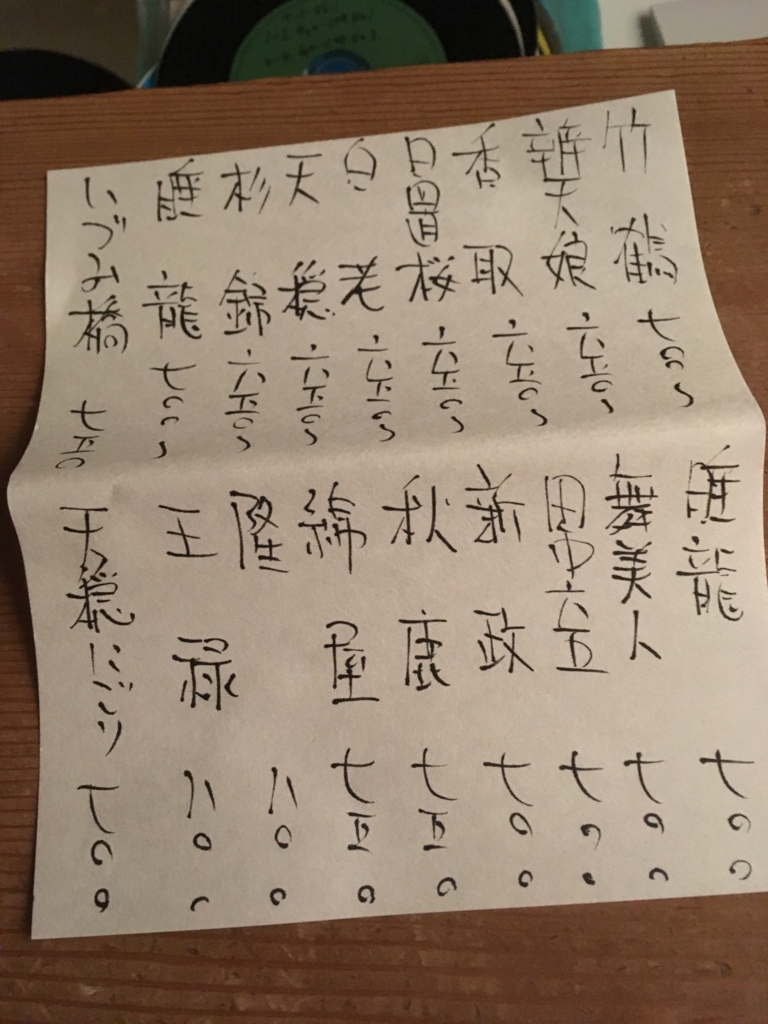 竹鶴 七〇〇
辨天娘 六五〇
香取 六五〇
日置桜 六五〇
白老 六五〇
天穏 六五〇
杉錦 六五〇
睡龍 七〇〇
いづみ橋 七五〇
睡龍 七〇〇
舞美人 七〇〇
田中六五 七〇〇
新政 七〇〇
秋鹿 七五〇
綿屋 七五〇
隆 八〇〇
王祿 八〇〇
天穏にごり 七〇〇